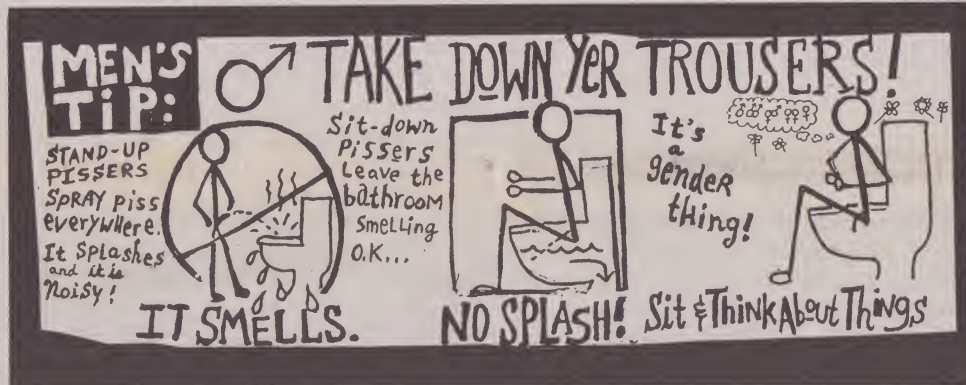 MEN'S
TiP:
TAKE DOWN YER TROUSERS!
STAND-UP
PISSERS
SPRAY piss
everywhere.
It SPLAshes
and it is
Noisy!
IT SMELLS.
Sit-down
Pissers
Leave the
bathroom
Smelling
O.K...
NO SPLASH!
It's
a
gender
tHing!
Sit & ThinkAboutThings